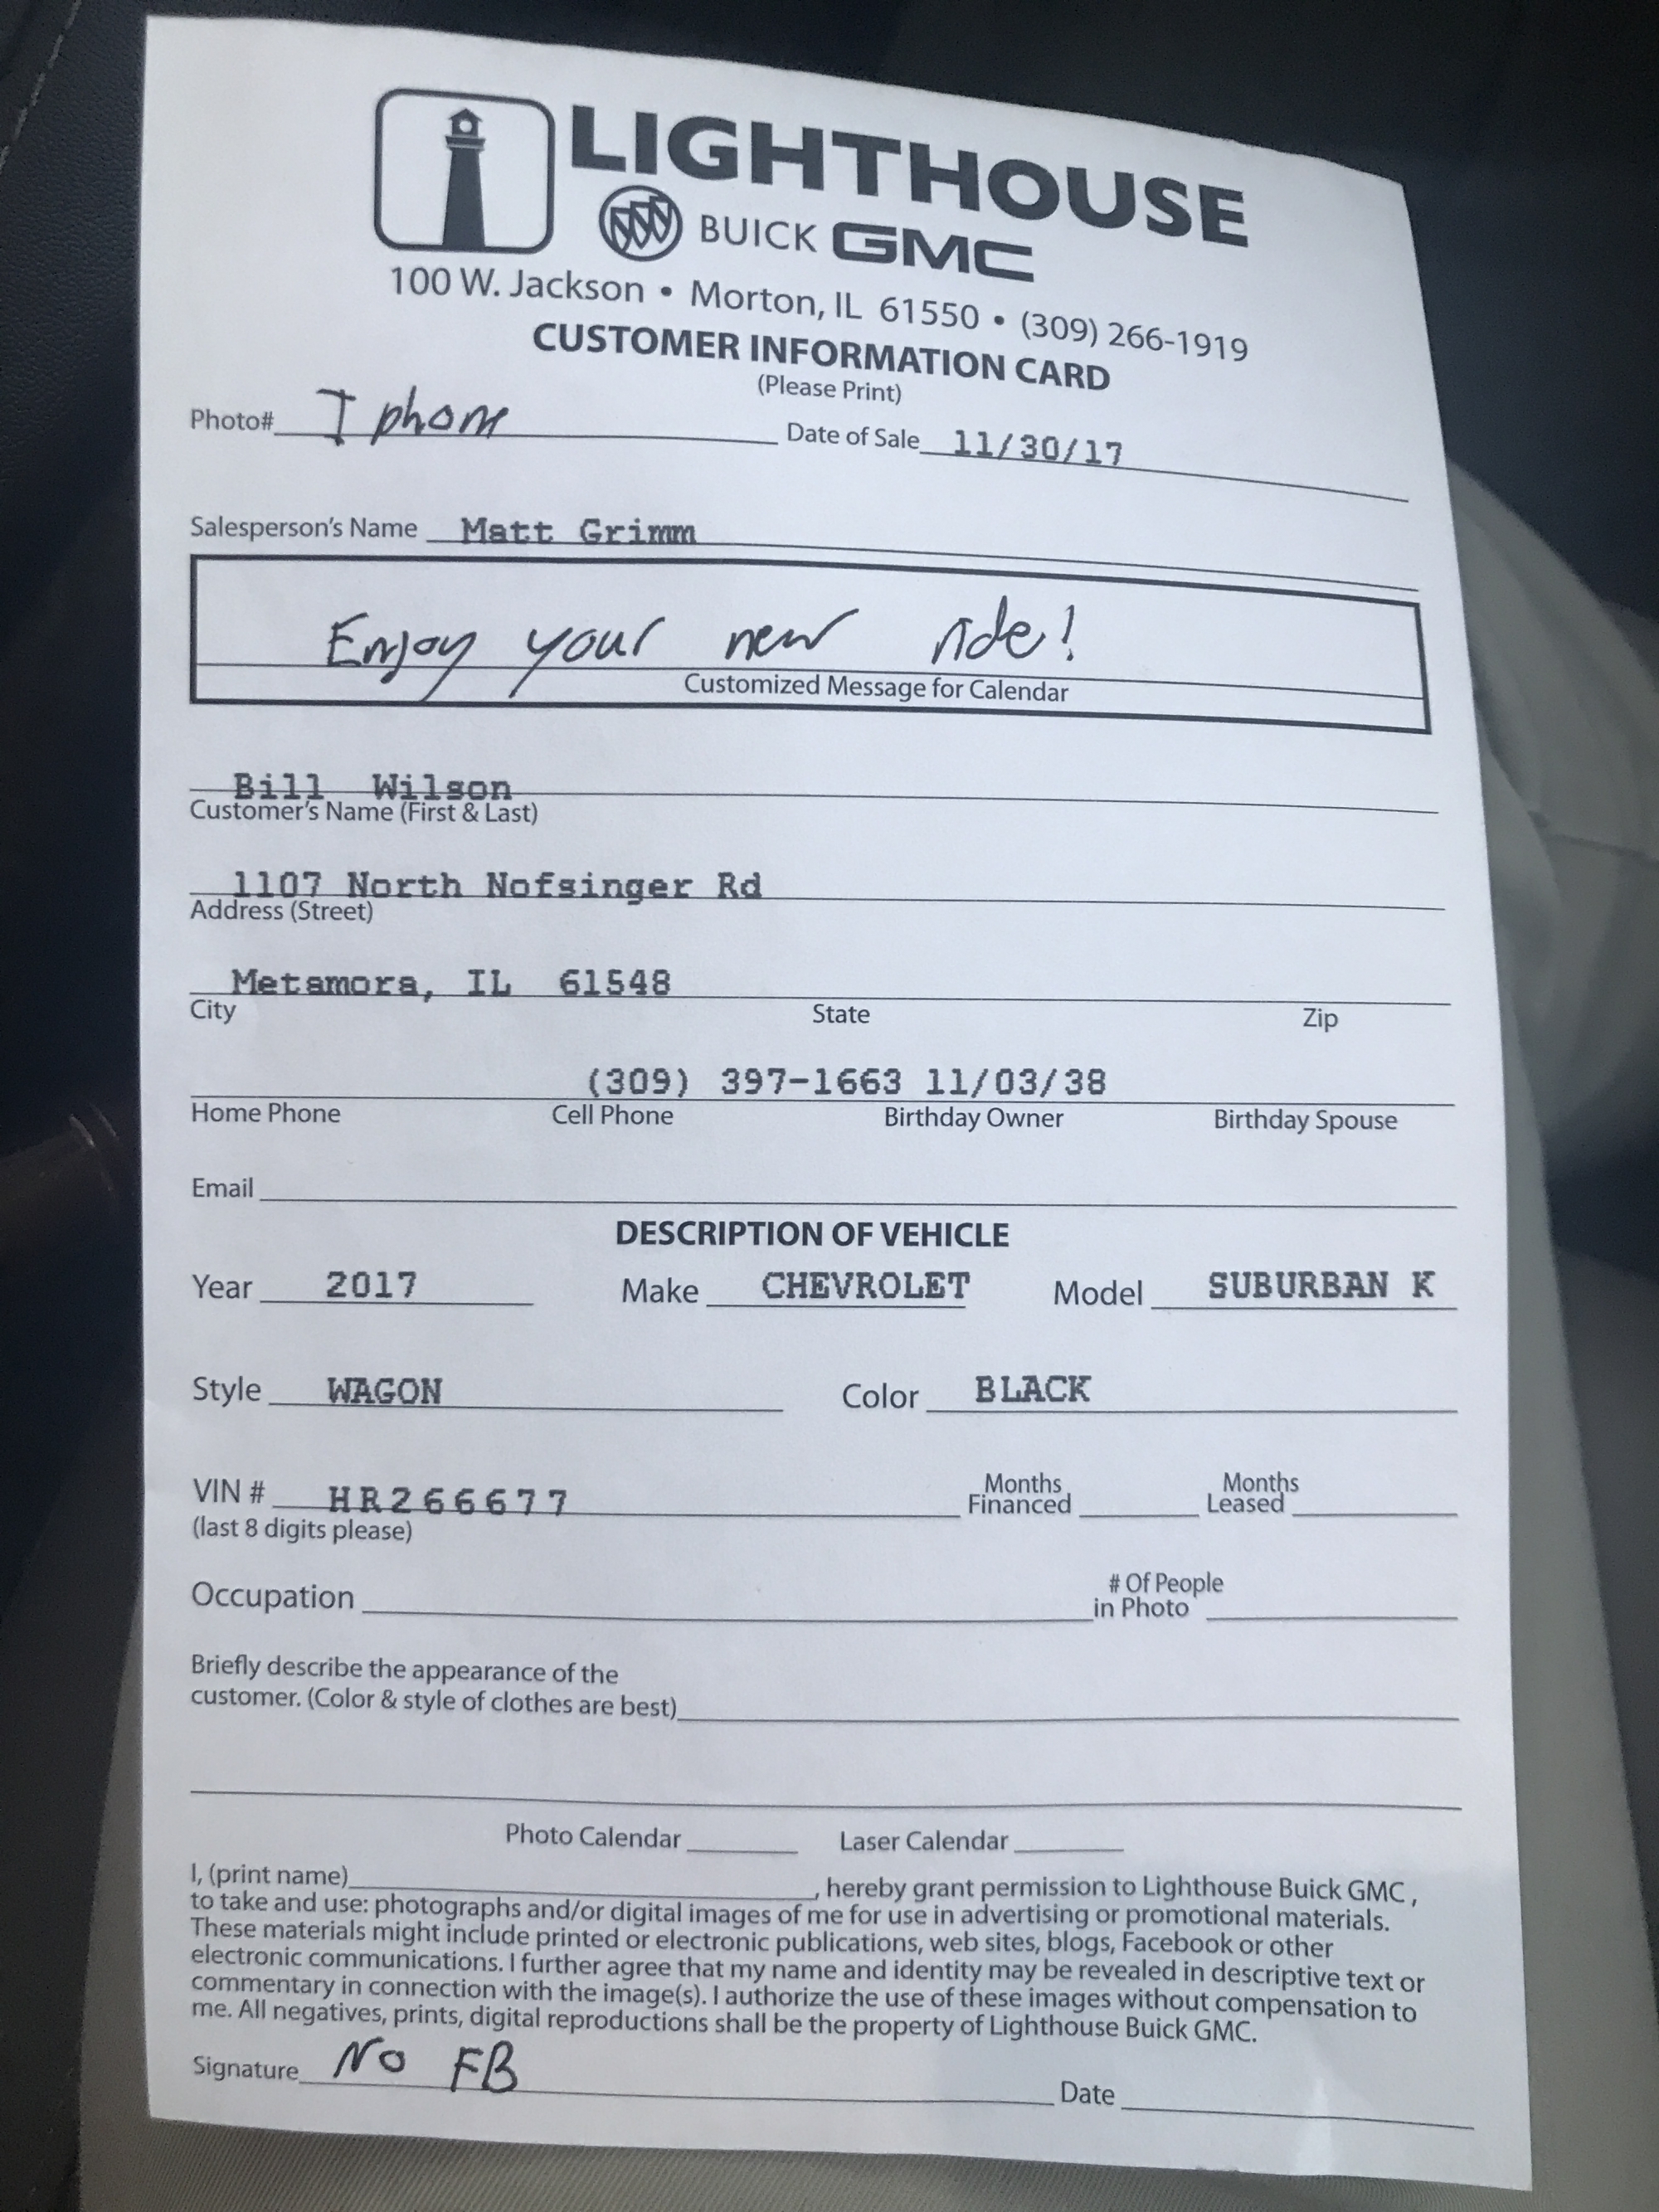 LIGHTHOUSE
BUICK GMC
100 W. Jackson • Morton, IL 61550 • (309) 266-1919
CUSTOMER INFORMATION CARD
(Please Print)
Photo# I phone Date of Sale 11/30/17
Salesperson's Name Matt Grimm
Enjoy your new ride!
Customized Message for Calendar
Bill Wilson
Customer's Name (First & Last)
1107 North Nofsinger Rd
Address (Street)
Metamora, IL 61548
City State Zip
(309) 397-1663 11/03/38
Home Phone Cell Phone Birthday Owner Birthday Spouse
Email
DESCRIPTION OF VEHICLE
Year 2017 Make CHEVROLET Model SUBURBAN K
Style WAGON Color BLACK
VIN # HR266677 Months Financed Months Leased
(last 8 digits please)
Occupation # Of People in Photo
Briefly describe the appearance of the
customer. (Color & style of clothes are best)
Photo Calendar Laser Calendar
I, (print name) , hereby grant permission to Lighthouse Buick GMC ,
to take and use: photographs and/or digital images of me for use in advertising or promotional materials.
These materials might include printed or electronic publications, web sites, blogs, Facebook or other
electronic communications. I further agree that my name and identity may be revealed in descriptive text or
commentary in connection with the image(s). I authorize the use of these images without compensation to
me. All negatives, prints, digital reproductions shall be the property of Lighthouse Buick GMC.
Signature No FB Date